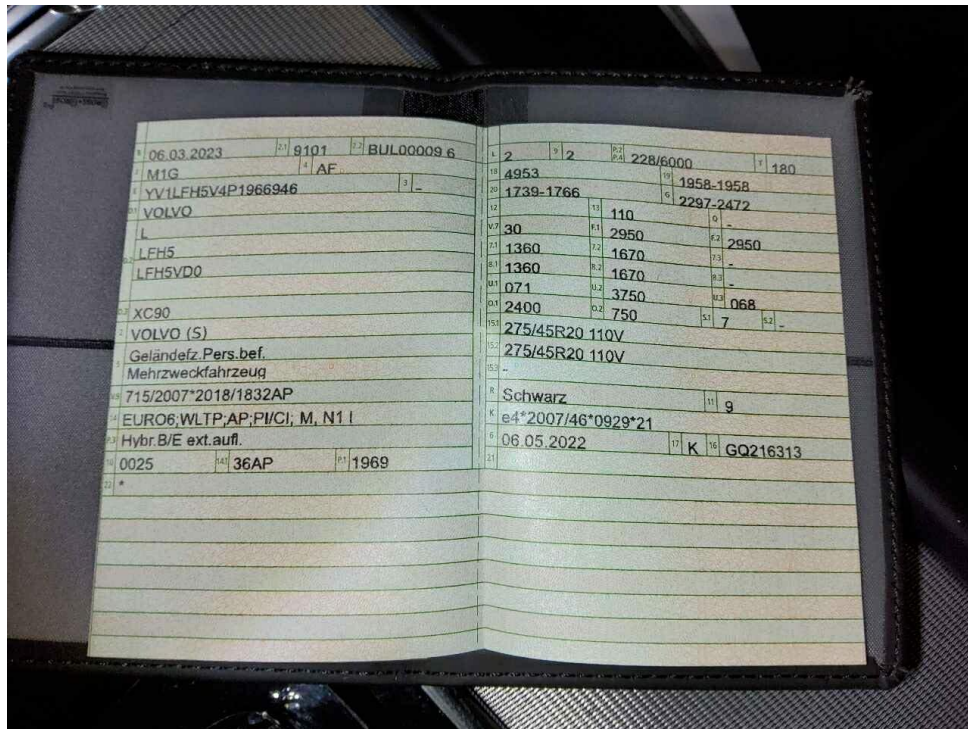 B 06.03.2023 2.1 9101 2.2 BUL00009 6
J M1G 4 AF
E YV1LFH5V4P1966946 3 -
D.1 VOLVO
L
D.2 LFH5
LFH5VD0
D.3 XC90
2 VOLVO (S)
5 Geländefz.Pers.bef.
Mehrzweckfahrzeug
V.9 715/2007*2018/1832AP
14 EURO6;WLTP;AP;PI/CI; M, N1 I
P.3 Hybr.B/E ext.aufl.
10 0025 14.1 36AP P.1 1969
22 *
L 2 9 2 P.2 P.4 228/6000 T 180
18 4953 19 1958-1958
20 1739-1766 G 2297-2472
12 13 110 Q -
V.7 30 F.1 2950 F.2 2950
7.1 1360 7.2 1670 7.3 -
8.1 1360 8.2 1670 8.3 -
U.1 071 U.2 3750 U.3 068
O.1 2400 O.2 750 S.1 7 S.2 -
15.1 275/45R20 110V
15.2 275/45R20 110V
15.3 -
R Schwarz 11 9
K e4*2007/46*0929*21
6 06.05.2022 17 K 16 GQ216313
21